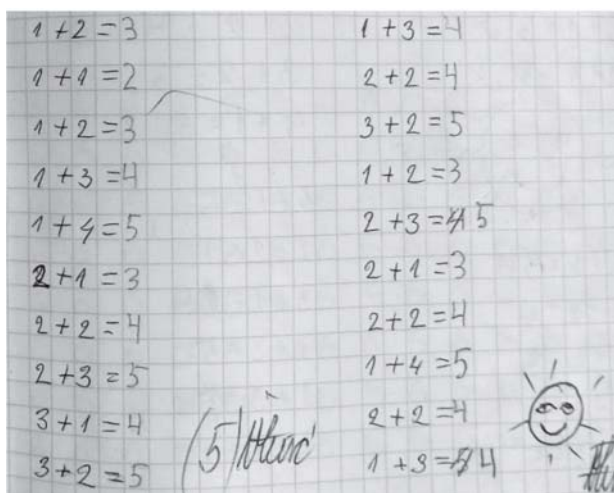 1+2=3
1+1=2
1+2=3
1+3=4
1+4=5
2+1=3
2+2=4
2+3=5
3+1=4
3+2=5
(5)
1+3=4
2+2=4
3+2=5
1+2=3
2+3=4 5
2+1=3
2+2=4
1+4=5
2+2=4
1+3=5 4